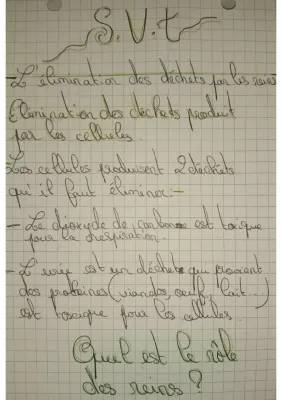 S.V.t
- L'élimination des déchets par les reins
Elimination des déchets produit
par les cellules.
Les cellules produisent 2 déchets
qu'il faut éliminer :-
- Le dioxyde de carbone est toxique
pour la respiration.
- L'urée est un déchets qui provient
des protéines (viandes, œuf, lait...)
est toxique pour les cellules
Quel est le rôle
des reins ?